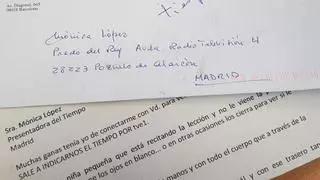 Av. Diagonal, 665
08028 Barcelona
Mónica López
Prado del Rey Avda Radio Televisión 4
28223 Pozuelo de Alarcón
MADRID
Sra. Mónica López
Presentadora del Tiempo
Madrid
Muchas ganas tenia yo de conectarme con Vd. para
SALE A INDICARNOS EL TIEMPO POR tve1.
niña pequeña que está recitando la lección y no le viene la
los ojos en blanco... o en otras ocasiones los cierra para ver si le
manos y con todo el cuerpo que a través de la
y con ese trasero tan